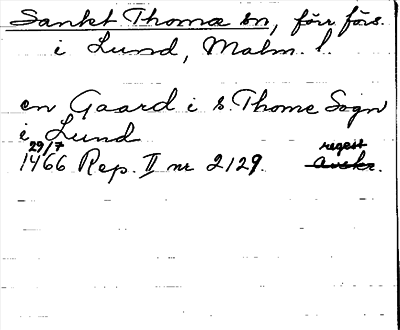 Sankt Thomæ sn, förr förs.
i Lund, Malm. l.
en Gaard i S. Thome Sogn
i Lund
29/7
1466 Rep. II nr 2129. regest
avskr.